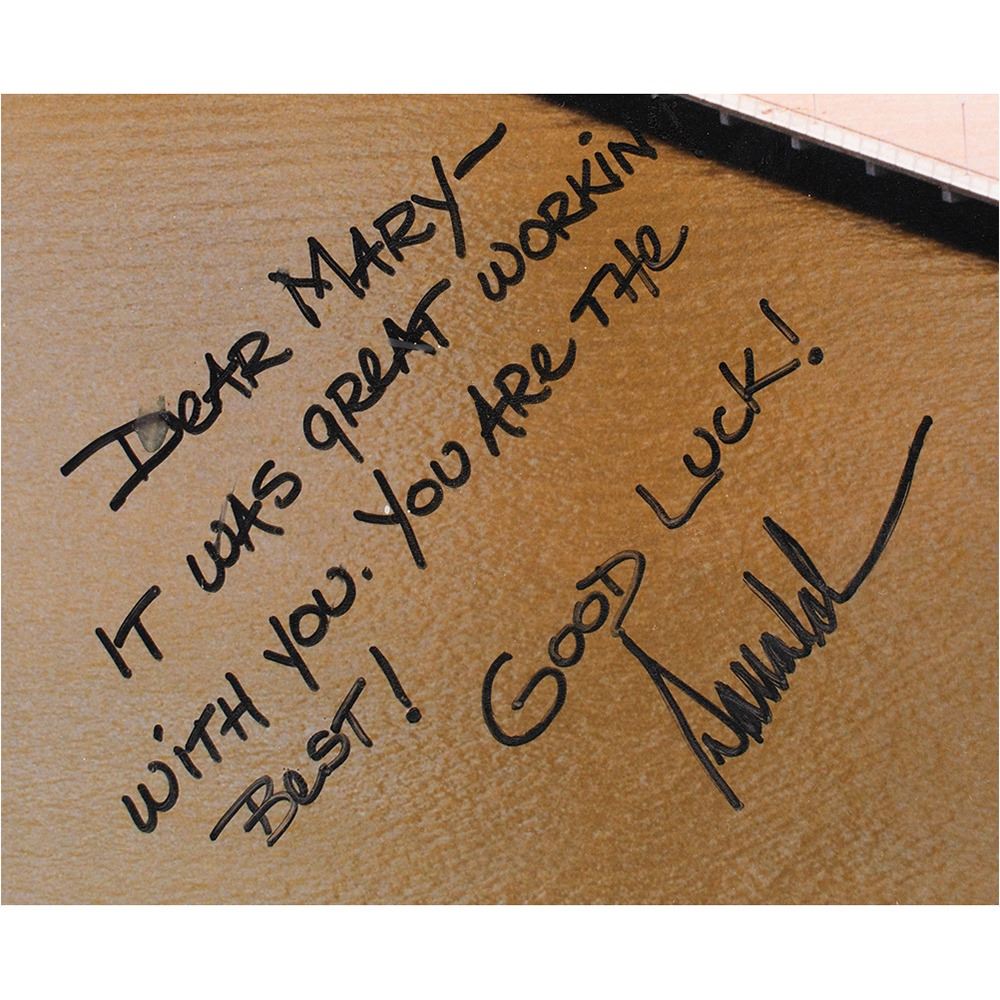 DEAR MARY-
IT WAS GREAT WORKING
WITH YOU. YOU ARE THE
BEST!
GOOD LUCK!
Donald